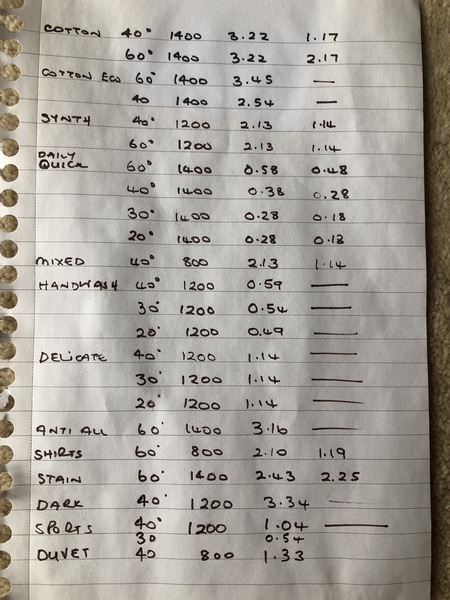 COTTON 40° 1400 3.22 1.17
60° 1400 3.22 2.17
COTTON ECO 60° 1400 3.45 —
40 1400 2.54 —
SYNTH 40° 1200 2.13 1.14
60° 1200 2.13 1.14
DAILY
QUICK 60° 1400 0.58 0.48
40° 1400 0.38 0.28
30° 1400 0.28 0.18
20° 1400 0.28 0.18
MIXED 40° 800 2.13 1.14
HANDWASH 40° 1200 0.59 —
30° 1200 0.54 —
20° 1200 0.49 —
DELICATE 40° 1200 1.14 —
30° 1200 1.14 —
20° 1200 1.14 —
ANTI ALL 60° 1400 3.16 —
SHIRTS 60° 800 2.10 1.19
STAIN 60° 1400 2.43 2.25
DARK 40° 1200 3.34 —
SPORTS 40° 1200 1.04 —
30 0.54
DUVET 40 800 1.33